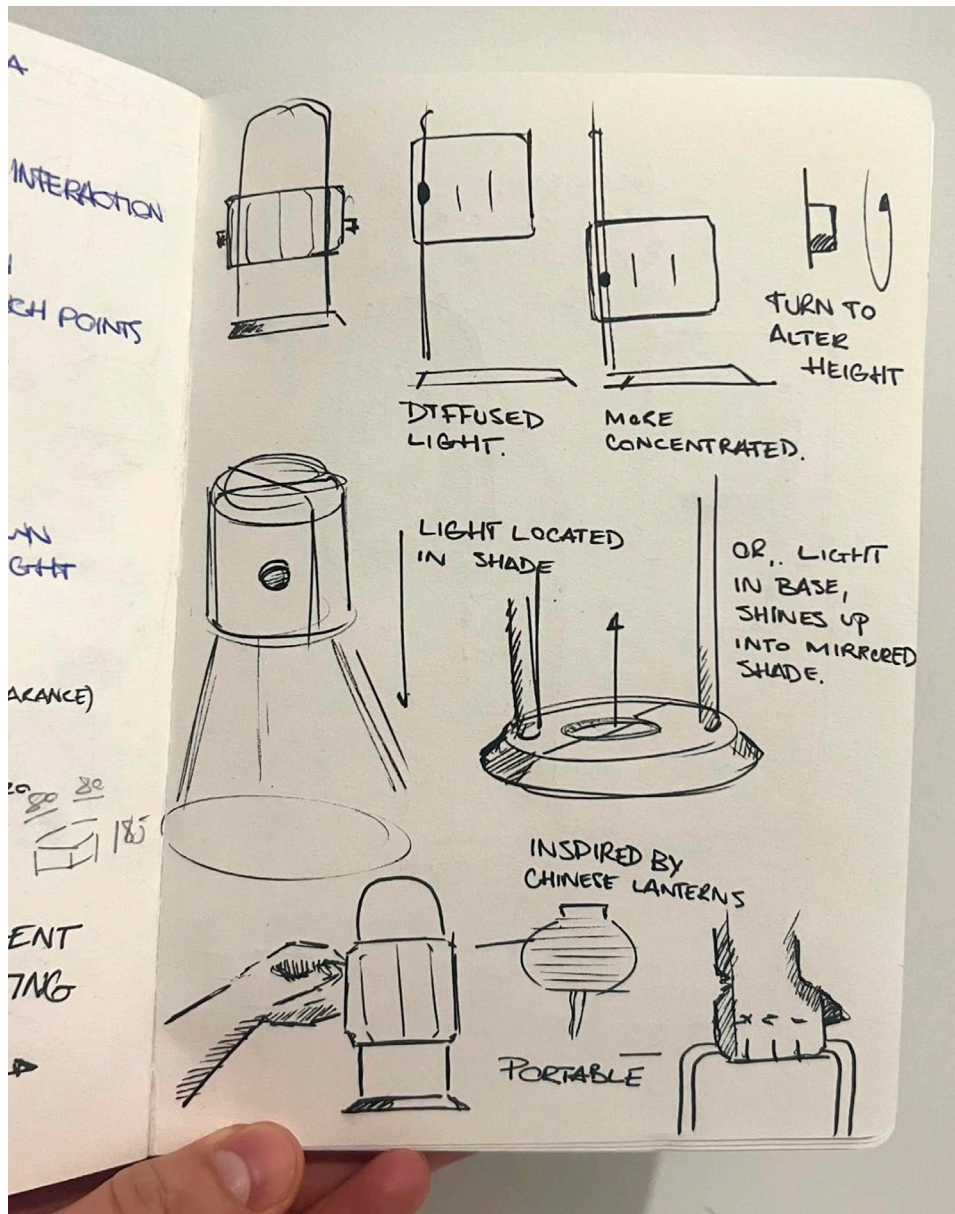 INTERACTION
POINTS
ARANCE)
80 80
185
DIFFUSED
LIGHT.
MORE
CONCENTRATED.
TURN TO
ALTER
HEIGHT
LIGHT LOCATED
IN SHADE
OR,. LIGHT
IN BASE,
SHINES UP
INTO MIRRORED
SHADE.
INSPIRED BY
CHINESE LANTERNS
PORTABLE